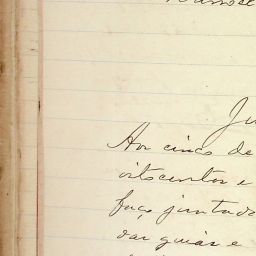 Ju
Aos cinco de
oitocentos e
faço juntada
das guias e